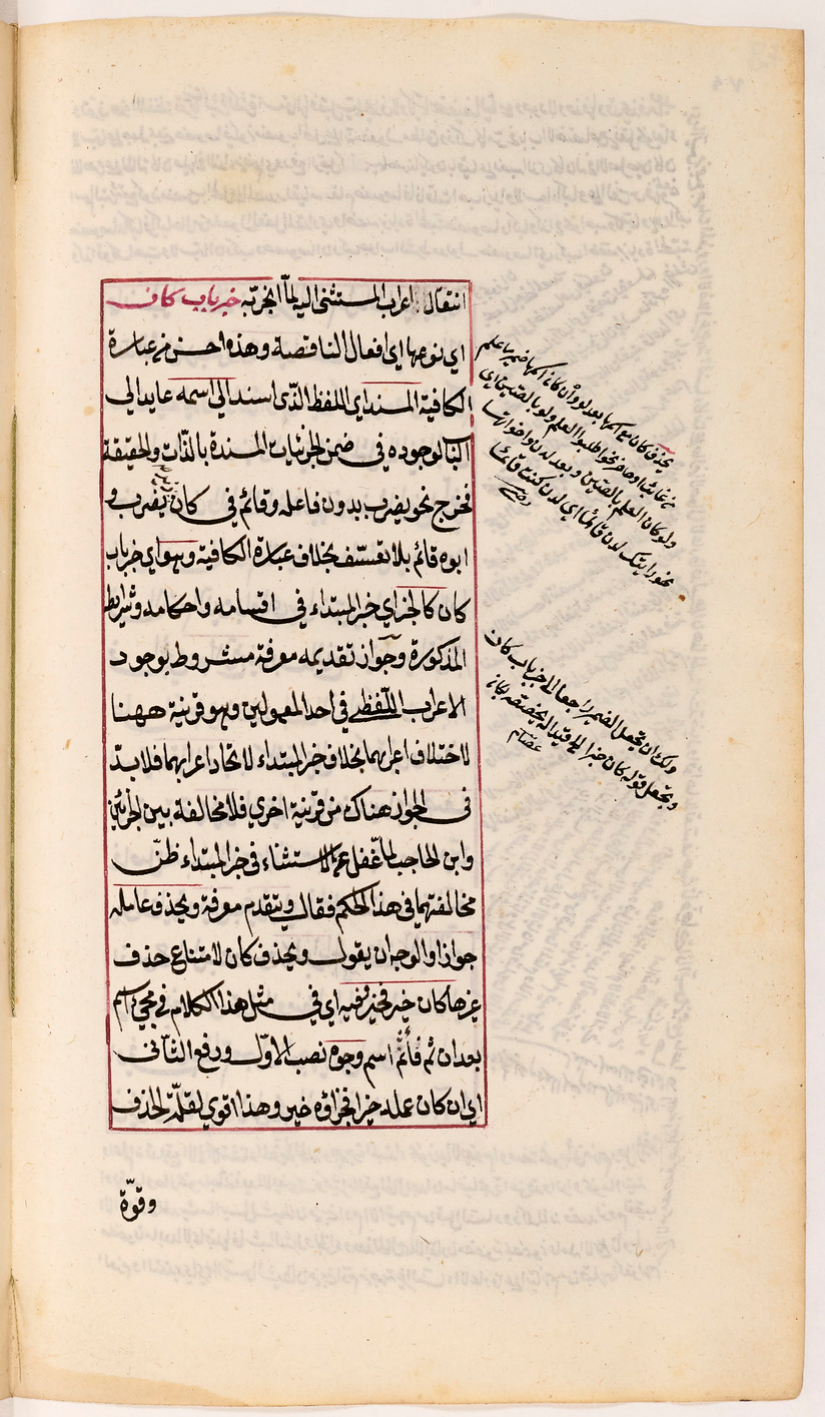 انتقال اعراب المستثنى اليه لما انجر به خبر باب كان
اى نوعها اى افعال الناقصة وهذه احسن من عبارة
الكافية المسند اى اللفظ الذى اسند الى اسمه عايد الى
الباب لوجوده فى ضمن الجزئيات المسندة بالذات والحقيقة
فخرج نحو يضرب بدون فاعله وقائم فى كان يضرب و
ابوه قائم بلا تعسف بخلاف عبارة الكافية وهو اى خبر باب
كان كالخبر اى خبر المبتداء فى اقسامه واحكامه وشرايطه
المذكورة وجواز تقديمه معرفة مشروط بوجود
الاعراب اللفظى فى احد المعمولين وهو قرينة ههنا
لاختلاف اعرابهما بخلاف خبر المبتداء لاتحاد اعرابهما فلا بد
فى الجواز هناك من قرينة اخرى فلا مخالفة بين الخبرين
وابن الحاجب لما غفل عن الاستثناء فى خبر المبتداء ظن
مخالفتهما فى هذا الحكم فقال ويتقدم معرفة ويحذف عامله
جوازا والوجه ان يقول ويحذف كان لامتناع حذف
غيرها كان خير فخير وفيه اى فى مثل هذا الكلام فى مجئ اسم
بعد ان ثم فاء ثم اسم وجوه نصب الاول ورفع الثانى
اى ان كان عمله خيرا فجزاؤه خير وهذا اقوى لقلة الحذف
وقوة
يحذف كان مع اسمها بعد لو وان كان اسمها ضمير ما علم
من غائب او حاضر نحو اطلبوا العلم ولو بالصين اى
ولو كان العلم بالصين وبعد لدن واخواتها
نحو رايتك لدن قائما اى لدن كنت قائما
ولك ان تجعل الضمير راجعا الى خبر باب كان
وتجعل قوله كان خبرا
عصام